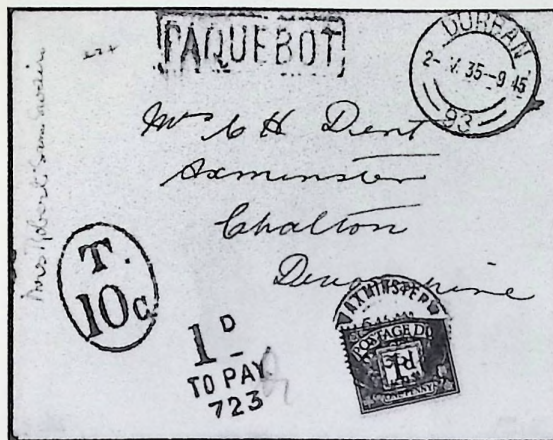 PAQUEBOT
DURBAN
2- V 35-9 45
93
Mrs C H Dent
Axminster
Chalton
Devonshire
T.
10c
1D
TO PAY
723
AXMINSTER
POSTAGE DUE
1D
ONE PENNY
Mrs Robert